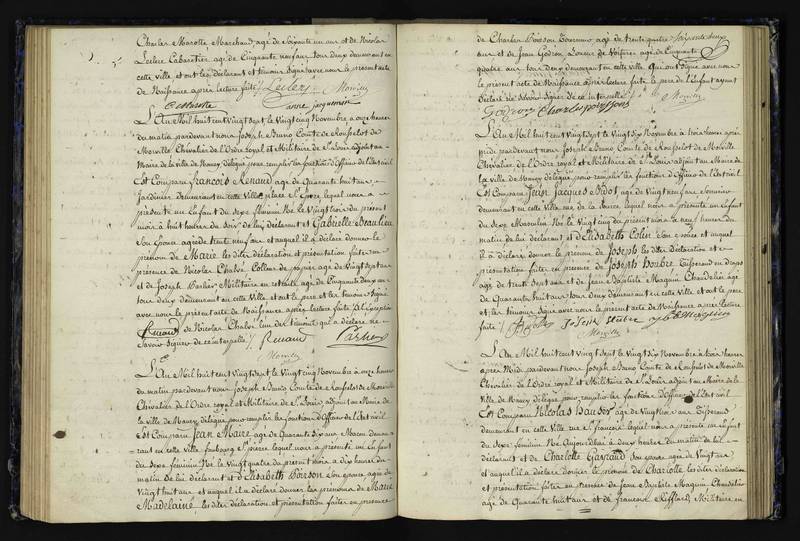 Charles Marotte Marchand, agé de Soixante un ans et de Nicolas
Leclerc Cabaretier agé de Cinquante neuf ans tous deux demeurant en
cette ville et ont les déclarant et témoins Signé avec nous le présent acte
de Naissance après lecture faite / Leclerc Morville
anne jacquemin
L'An Mil huit cent Vingt Sept, le Vingt Cinq Novembre à onze heures
du matin pardevant nous Joseph Bruno Comte de Rouffelot de
Morville Chevalier de l'Ordre royal et Militaire de St Louis adjoint au
Maire de la ville de Nancy, délégué pour remplir les fonctions d'Officier de l'Etat civil
Est Comparu francois Renaud agé de Quarante huit ans
Jardinier demeurant en cette Ville place lequel nous a
présenté un Enfant du Sexe féminin Né le Vingt trois du présent
mois à huit heures du Soir de lui déclarant et Gabrielle Beaulieu
Son Epouse agée de trente neuf ans et auquel il a déclaré donner le
prénom de Marie les dites déclaration et présentation faites en
présence de Nicolas Chalos de papier agé de Vingt sept ans
et de Joseph Parlier Militaire en retraite agé de Cinquante deux ans
tous deux demeurant en cette Ville et ont le père et les témoins Signé
avec nous le présent acte de Naissance après lecture faite à l'exception
Renaud de Nicolas Chalos l'un des témoins qui a déclaré ne
Savoir Signer de ce interpellé / Renaud Parlier
Morville
L'An Mil huit cent Vingt Sept le Vingt cinq Novembre à onze heures
du matin pardevant nous Joseph Bruno Comte de Rouffelot de Morville
Chevalier de l'Ordre royal et Militaire de St Louis adjoint au Maire de
la ville de Nancy délégué pour remplir les fonctions d'Officier de l'Etat civil
Est Comparu Jean Maire agé de Quarante Six ans Macon demeu-
rant en cette ville faubourg St Pierre lequel nous a présenté un Enfant
du Sexe féminin Né le Vingt quatre du présent mois à dix heures du
matin de lui déclarant et d'Elisabeth Poirson Son épouse agée de
Vingt huit ans et auquel il a déclaré donner les prénoms de Marie
Madelaine les dites déclaration et présentation faites en présence
de Charles Poirson Tourneur agé de trente quatre
ans et de Jean Godron Loueur de Voitures agé de Cinquante
quatre ans tous deux demeurant en cette ville Qui ont Signé avec nous
le présent acte de Naissance après lecture faite le père de l'Enfant ayant
déclaré ne Savoir Signer de ce interpellé
Godron Charles poirsons Morville
L'An Mil huit cent Vingt Sept le Vingt Six Novembre à trois heures après
midi pardevant nous Joseph Bruno Comte de Rouffelot de Morville
Chevalier de l'Ordre royal et Militaire de St Louis adjoint au Maire de
la ville de Nancy délégué pour remplir les fonctions d'Officier de l'Etat civil
Est Comparu Jean Jacques Bidot agé de Vingt neuf ans
demeurant en cette Ville rue de la lequel nous a présenté un Enfant
du Sexe Masculin Né le Vingt cinq du présent mois à neuf heures du
matin de lui déclarant et d'Elisabeth Colin Son épouse et auquel
il a déclaré donner le prénom de Joseph les dites déclaration et
présentation faites en présence de Joseph Tisserand en draps
agé de trente Sept ans et de Jean Baptiste Maquin Chandelier agé
de Quarante huit ans tous deux demeurant en cette Ville et ont le père
et les témoins Signé avec nous le présent acte de Naissance après lecture
faite / Joseph
Morville
L'An Mil huit cent Vingt Sept le Vingt Six Novembre à trois heures
après Midi pardevant nous Joseph Bruno Comte de Rouffelot de Morville
Chevalier de l'Ordre royal et Militaire de St Louis adjoint au Maire de la
Ville de Nancy délégué pour remplir les fonctions d'Officier de l'Etat civil
Est Comparu Nicolas hauser agé de Vingt ans Tisserand
demeurant en cette Ville rue St francois lequel nous a présenté un Enfant
du Sexe féminin Né Aujourd'hui à deux heures du matin de lui
déclarant et de Charlotte Son épouse agée de Vingt ans
et auquel il a déclaré donner le prénom de Charlotte les dites déclaration
et présentation faites en présence de Jean Baptiste Maquin Chandelier
agé de Quarante huit ans et de francois Militaire en